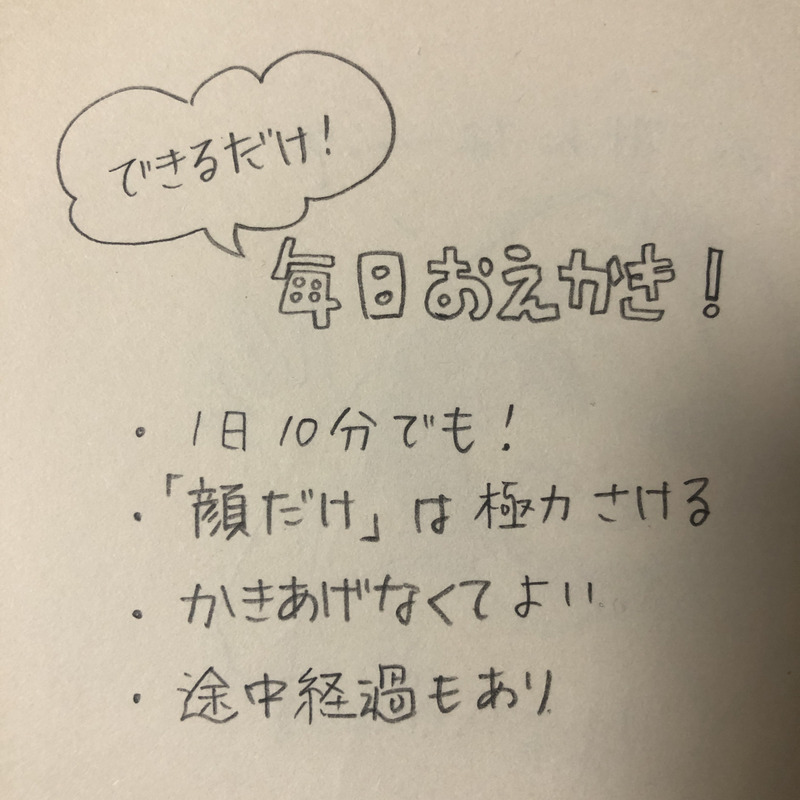 できるだけ!
毎日おえかき!
・1日10分でも!
・「顔だけ」は極力さける
・かきあげなくてよい
・途中経過もあり